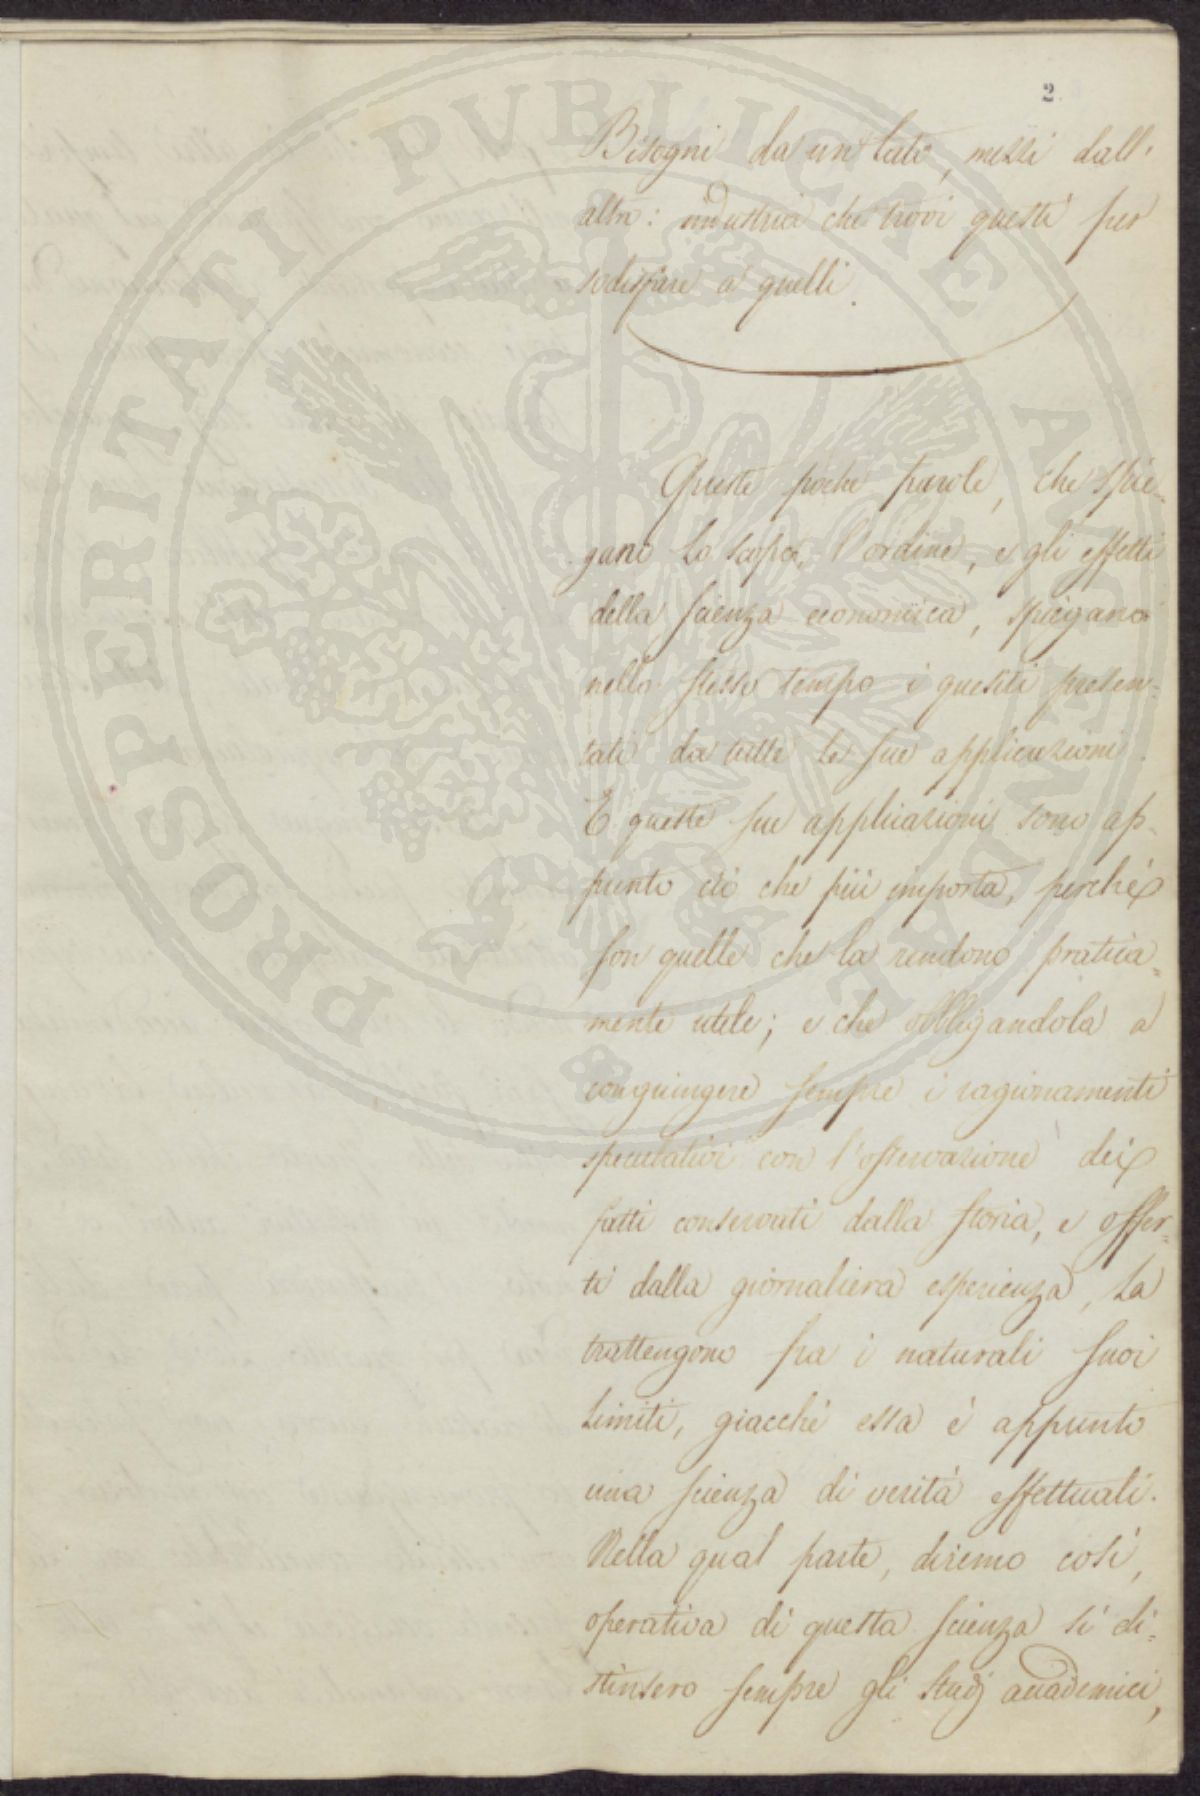 2.
Bisogni da un lato, mezzi dall'
altro: industria che trovi questi per
sodisfare a quelli.
Queste poche parole, che spie-
gano lo scopo, l'ordine, e gli effetti
della scienza economica, spiegano
nello stesso tempo i quesiti presen-
tati da tutte le sue applicazioni.
E queste sue applicazioni sono ap-
punto ciò che più importa, perchè
son quelle che la rendono pratica-
mente utile; e che obbligandola a
congiungere sempre i ragionamenti
speculativi con l'osservazione dei
fatti conservati dalla storia, e offer-
ti dalla giornaliera esperienza, la
trattengono fra i naturali suoi
limiti, giacchè essa è appunto
una scienza di verità effettuali.
Nella qual parte, diremo così,
operativa di questa scienza si di-
stinsero sempre gli studj accademici,
PROSPERITATI PUBLICAE AUGENDAE